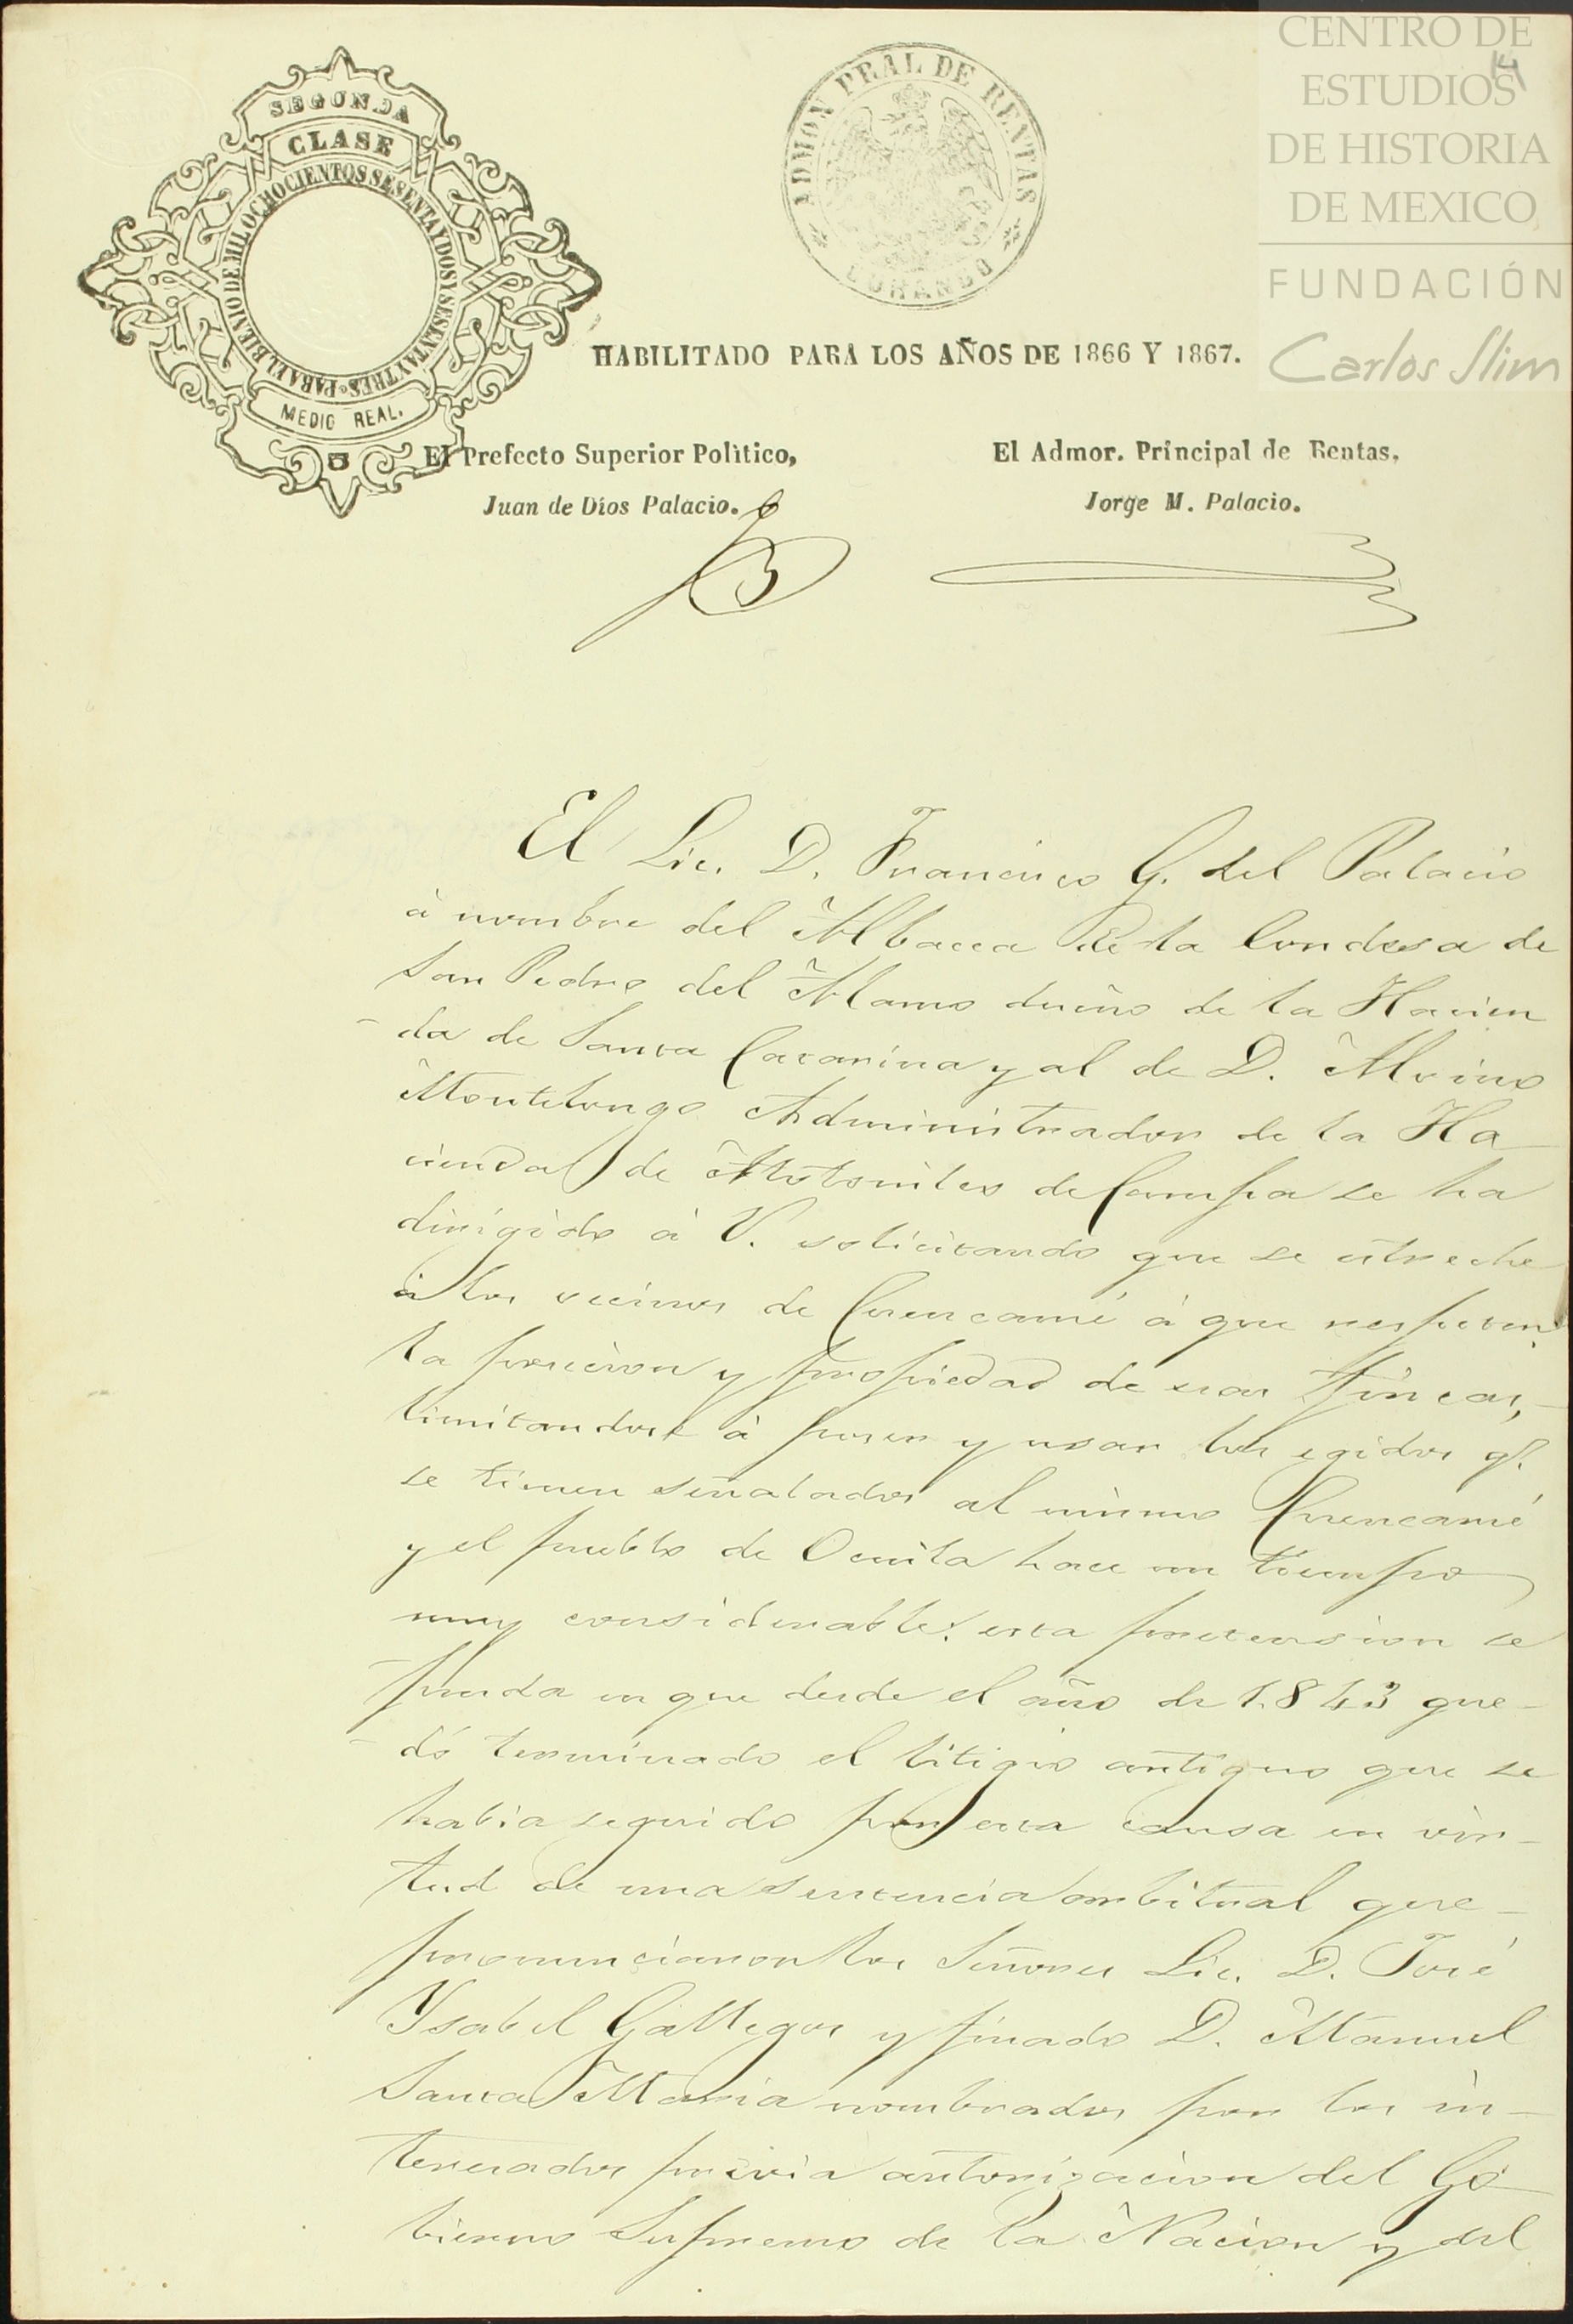 CENTRO DE
ESTUDIOS
DE HISTORIA
DE MEXICO
FUNDACIÓN
Carlos Slim
SEGUNDA
CLASE
PARA EL BIENIO DE MIL OCHOCIENTOS SESENTA Y DOS Y SESENTA Y TRES
MEDIO REAL.
ADMON PRAL DE RENTAS
DURANGO
HABILITADO PARA LOS AÑOS DE 1866 Y 1867.
El Prefecto Superior Politico,
Juan de Dios Palacio.
El Admor. Principal de Rentas,
Jorge M. Palacio.
El Lic. D. Francisco G. del Palacio
á nombre del Albacea de la Condesa de
San Pedro del Alamo dueño de la Hacien
da de Santa Catarina y al de D. Alvino
Montelongo Administrador de la Ha
cienda de Atotonilco de Campa se ha
dirigido á V. solicitando que se estreche
á los vecinos de Cuencamé á que respeten
la posecion y propiedad de esas fincas,
limitandose á poseer y usar los egidos q.
se tienen señalados al mismo Cuencamé
y el pueblo de Ocuila hace un tiempo
muy considerable: esta pretension se
funda en que desde el año de 1843 que-
dó terminado el litigio antiguo que se
habia seguido por esta causa en vir-
tud de una sentencia arbitral que-
pronunciaron los Señores Lic. D. José
Ysabel Gallegos y finado D. Manuel
Santa Maria nombrados por los in-
teresados previa autorizacion del Go
bierno Supremo de la Nacion y del